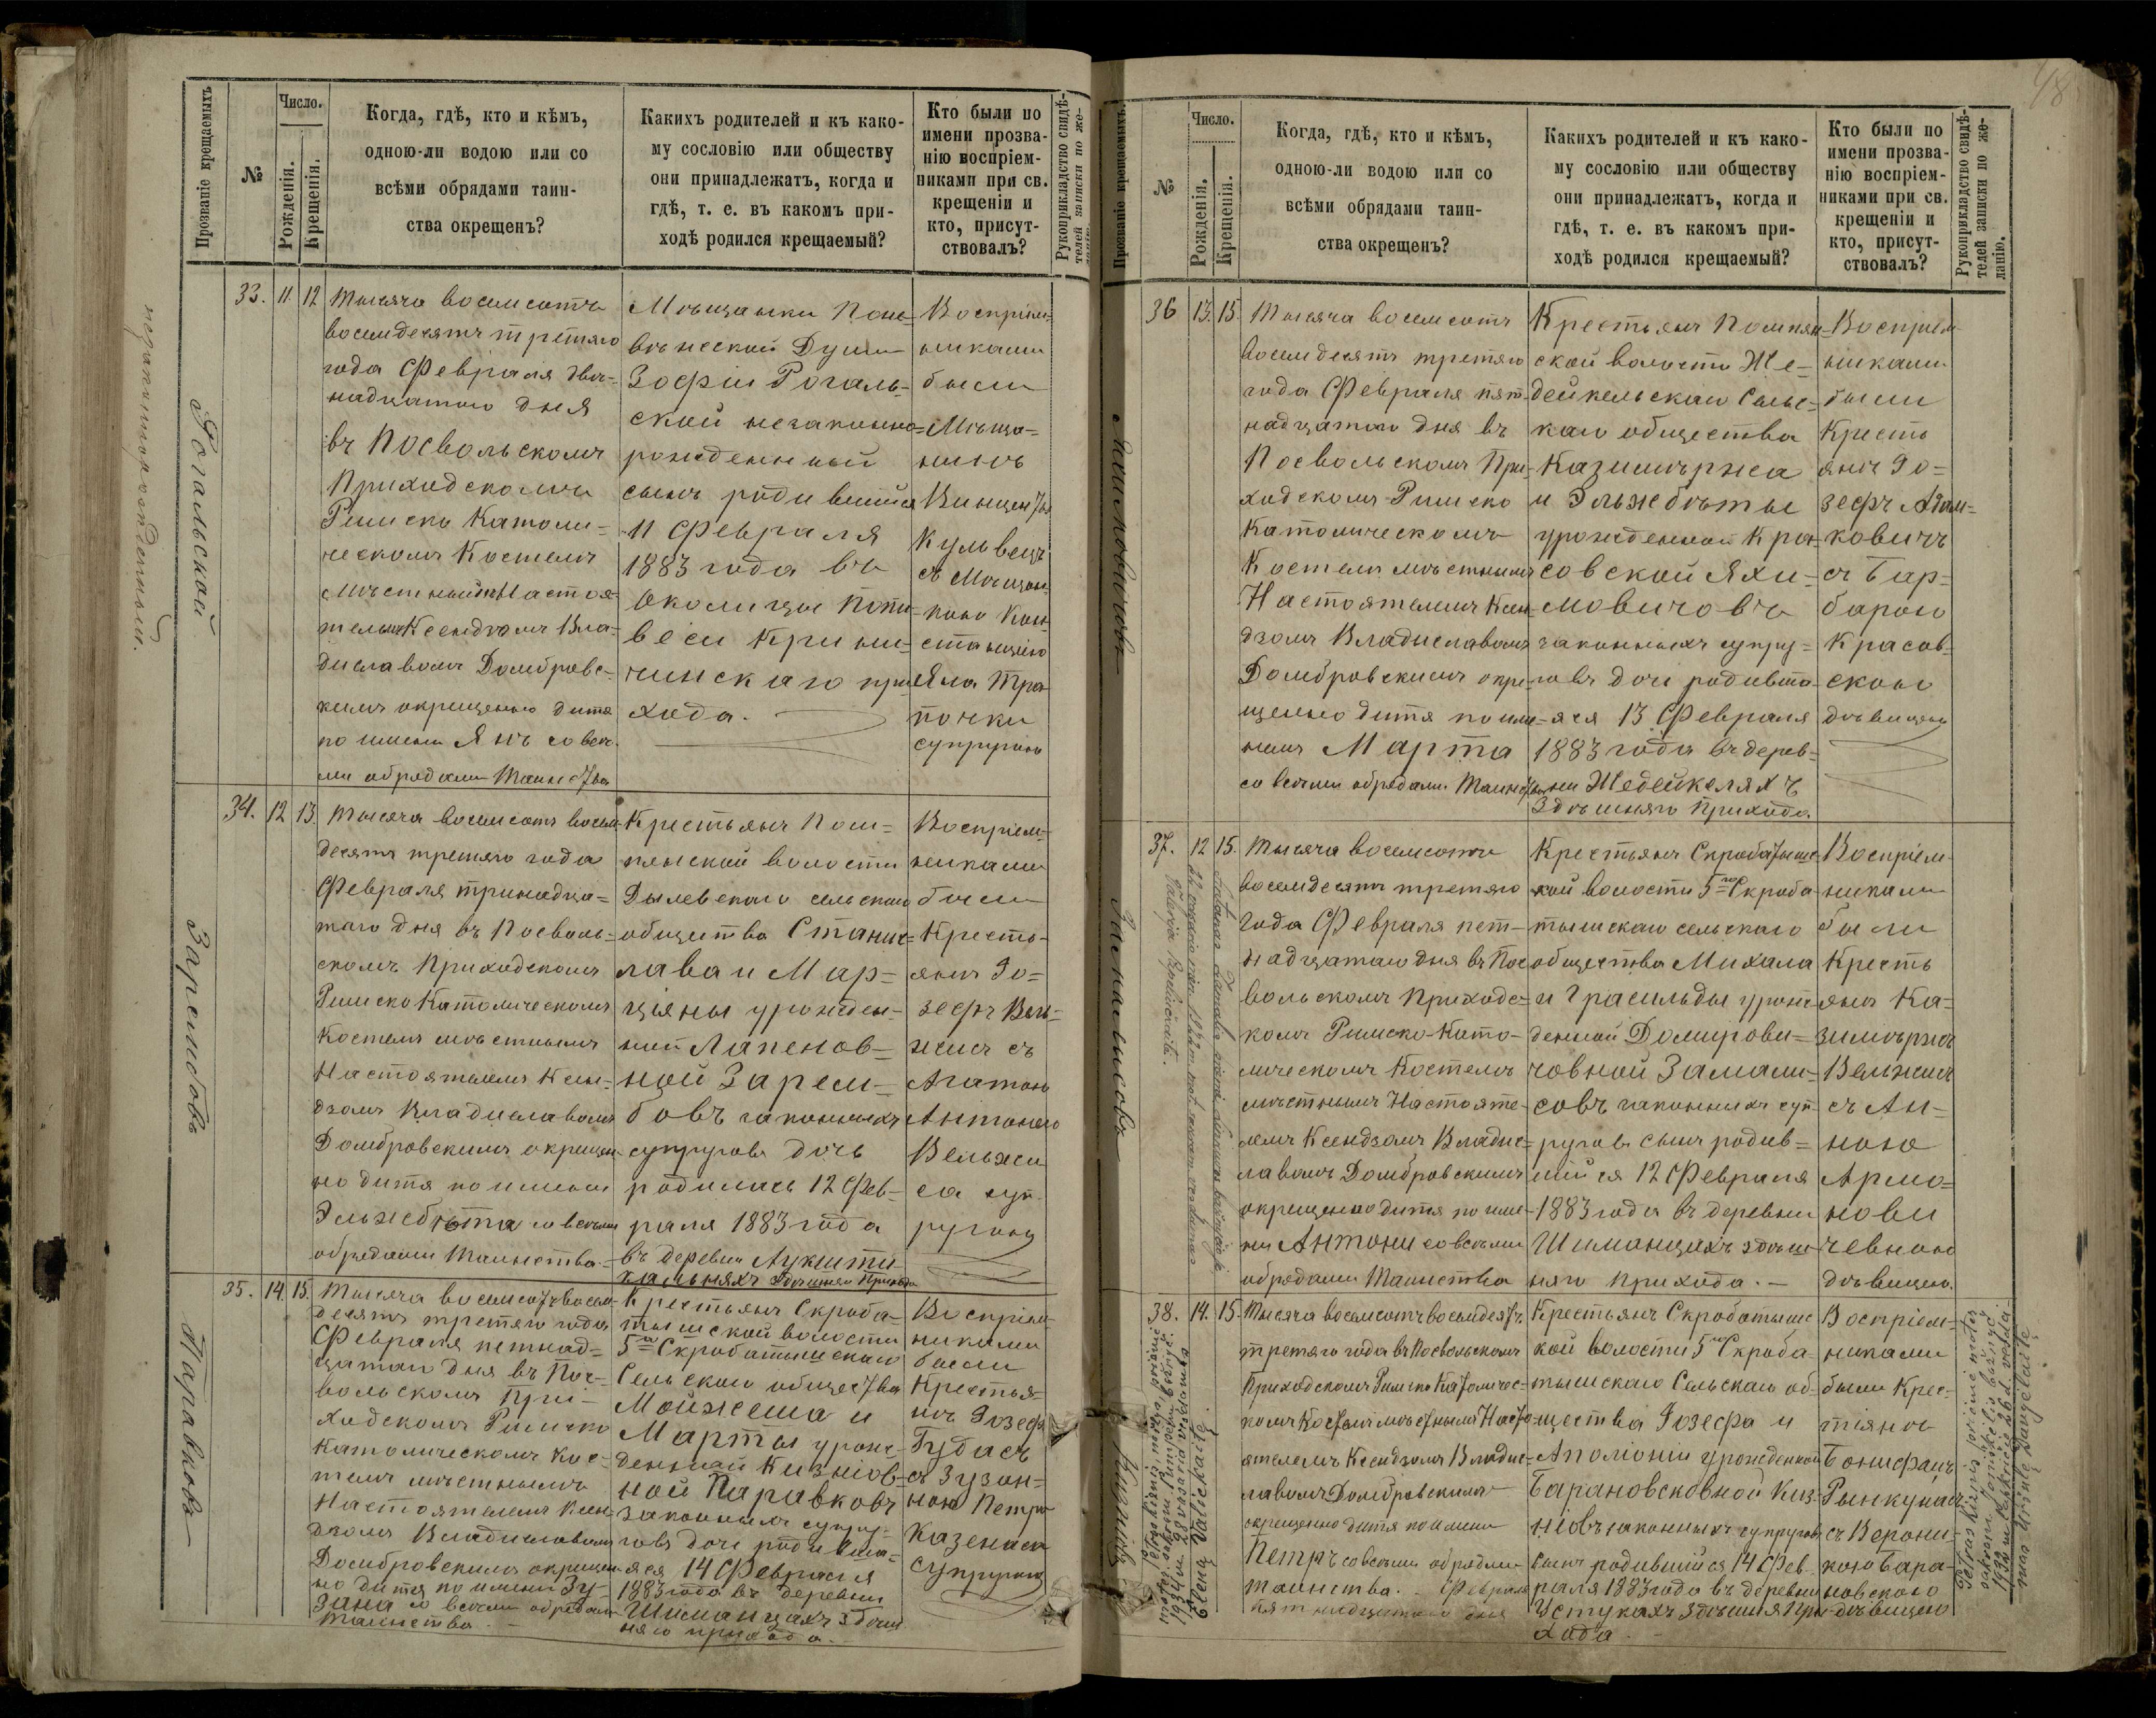 Прозваніе крещаемыхъ
№
Число.
Рожденія.
Крещенія.
Когда, гдѣ, кто и кѣмъ,
одною-ли водою или со
всѣми обрядами таин-
ства окрещенъ?
Какихъ родителей и къ како-
му сословію или обществу
они принадлежатъ, когда и
гдѣ, т. е. въ какомъ при-
ходѣ родился крещаемый?
Кто были по
имени прозва-
нію воспріем-
никами при св.
крещеніи и
кто, присут-
ствовалъ?
Рукоприкладство свидѣ-
телей записки по же-
незаконнорожденный.
Рогальской
33. 11 12
Тысяча восемсотъ
восемдесятъ третяго
года Февраля два-
надцатого дня
въ Посвольскомъ
Приходскомъ
Римско Католи-
ческомъ Костелѣ
мѣстнымъ Настоя-
телемъ Ксендзомъ Вла-
диславомъ Домбровс-
кимъ окрещено дитя
по имени Янъ со всѣ-
ми обрядами Таинства
Мѣщанки Поне-
вѣжской Думы
Зофіи Рогаль-
ской незаконно-
рожденный
сынъ родившійся
11 Февраля
1883 года въ
околицы
веси Крини-
чинскаго при-
хода.
Воспріем-
никами
были
Мѣща-
нинъ
Винценты
Кульвецъ
съ Мѣщан-
кою Кон-
станціею
Яна
супругою
Зарембовъ
34. 12 13.
Тысяча восемсотъ восем-
десятъ третяго года
Февраля тринадца-
таго дня въ Посволь-
скомъ Приходскомъ
Римско Католическомъ
Костелѣ мѣстнымъ
Настоятелемъ Ксен-
дзомъ Владиславомъ
Домбровскимъ окреще-
но дитя по имени
Эльжбѣта со всѣми
обрядами Таинства.
Крестьянъ Пом-
пянской волости
Дылевскаго сельскаго
общества Станис-
лава и Мар-
ціяны урожден-
ной Лапенов-
ной Зарем-
бовъ законныхъ
супруговъ дочь
родилась 12 Фев-
раля 1883 года
въ деревни
здѣшняго Прихода
Воспріем-
никами
были
Кресть-
янъ Іо-
зефъ Вель-
жисъ съ
Агатою
Антонего
Вельжи-
са суп-
ругою
Паравковъ
35. 14. 15.
Тысяча восемсотъ восем-
десятъ третяго года
Февраля петнад-
цатаго дня въ Пос-
вольскомъ При-
ходскомъ Римско
Католическомъ Кос-
телѣ мѣстнымъ
Настоятелемъ Ксен-
дзомъ Владиславомъ
Домбровскимъ окреще-
но дитя по имени Зу-
зана со всѣми обрядами
Таинства.
Крестьянъ Скроба-
тышской волости
5го Скробатышскаго
Сельскаго общества
Мойжеша и
Марты урож-
денной Кизнов-
ной Паравковъ
законныхъ супру-
говъ дочь родивша-
яся 14 Февраля
1883 года въ деревни
Шиманцахъ здѣш-
няго прихода.
Воспріем-
никами
были
Крестья-
нъ Іозефъ
Губасъ
съ Зузан-
ною Петра
Казенаса
супругою
48
Прозваніе крещаемыхъ.
№
Число.
Рожденія.
Крещенія.
Когда, гдѣ, кто и кѣмъ,
одною-ли водою или со
всѣми обрядами таин-
ства окрещенъ?
Какихъ родителей и къ како-
му сословію или обществу
они принадлежатъ, когда и
гдѣ, т. е. въ какомъ при-
ходѣ родился крещаемый?
Кто были по
имени прозва-
нію воспріем-
никами при св.
крещеніи и
кто, присут-
ствовалъ?
Рукоприкладство свидѣ-
телей записки по же-
ланію.
Яхимовичовъ
36 13. 15.
Тысяча восемсотъ
восемдесятъ третяго
года Февраля пят-
надцатаго дня въ
Посвольскомъ При-
ходскомъ Римско
Католическомъ
Костелѣ мѣстнымъ
Настоятелемъ Ксен-
дзомъ Владиславомъ
Домбровскимъ окре-
щено дитя по име-
немъ Марта
со всѣми обрядами Таинства
Крестьянъ Помпян-
ской волости Же-
дейкельскаго Сельс-
каго общества
Казимѣржа
и Эльжбѣты
урожденной Кра-
совской Яхи-
мовичовъ
законныхъ супру-
говъ дочь родивша-
яся 13 Февраля
1883 года въ дерев-
ни Жедейкеляхъ
Здѣшняго Прихода
Воспріем-
никами
были
Кресть
янъ Іо-
зефъ Адам-
ковичъ
съ Бар-
барою
Красов-
скою
дѣвицею
37. 12 15.
Тысяча восемсотъ
восемдесятъ третяго
года Февраля пет-
надцатаго дня въ Пос-
вольскомъ Приходс-
комъ Римско-Като-
лическомъ Костелѣ
мѣстнымъ Настояте-
лемъ Ксендзомъ Владис-
лавомъ Домбровскимъ
окрещено дитя по име-
ни Антони со всѣми
обрядами Таинства
Крестьянъ Скробатышс-
кой волости 5го Скроба-
тышскаго сельскаго
общества Михала
и Грасильды урож-
денной Домирови-
човной Замали-
совъ законныхъ суп-
руговъ сынъ родив-
шійся 12 Февраля
1883 года въ деревни
Шиманцахъ здѣш-
няго прихода.
Воспріем-
никами
были
Кресть
янъ Ка-
зимѣржъ
Вельжисъ
съ Ан-
ною
Армо-
нови
чевною
дѣвицею.
38. 14. 15.
Тысяча восемсотъ восемдесятъ
третяго года въ Посвольскомъ
Приходскомъ Римско Католичес-
комъ Костелѣ мѣстнымъ Насто-
ятелемъ Ксендзомъ Владис-
лавомъ Домбровскимъ
окрещено дитя по имени
Петръ со всѣми обрядами
таинства. Февраля
пятнадцатаго дня
Крестьянъ Скробатышс-
кой волости 5го Скроба-
тышскаго Сельскаго об-
щества Іозефа и
Аполіоніи урожденной
Барановсковной Киз-
ніовъ законныхъ супруговъ
сынъ родившійся 14 Фев-
раля 1883 года въ деревни
Устукахъ здѣшняго При-
хода.
Воспріем-
никами
были Крес-
тіянъ
Бонифацъ
Рынкунасъ
съ Верони-
кою Бара-
новскою
дѣвицею